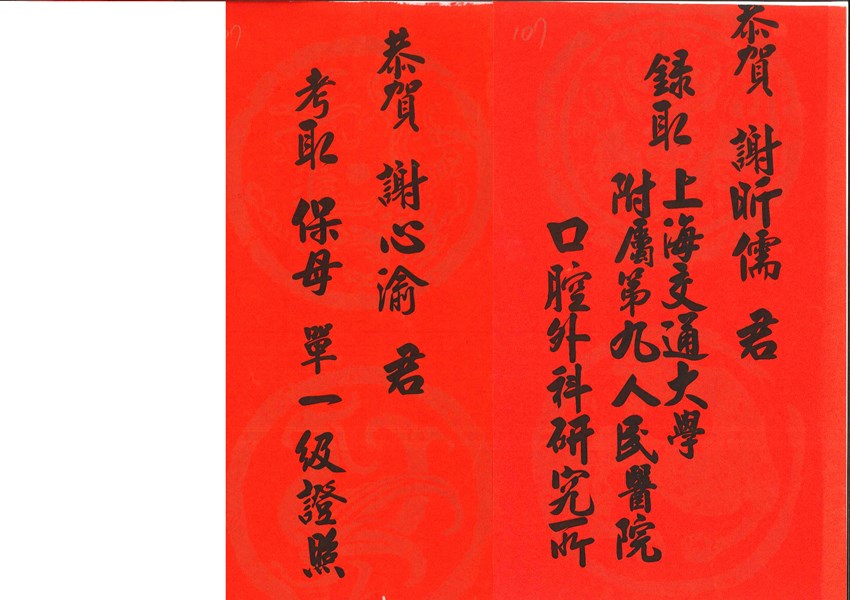 恭賀 謝昕儒 君
錄取 上海交通大學
附屬第九人民醫院
口腔外科研究所
恭賀 謝心渝 君
考取 保母 單一級證照
107
107